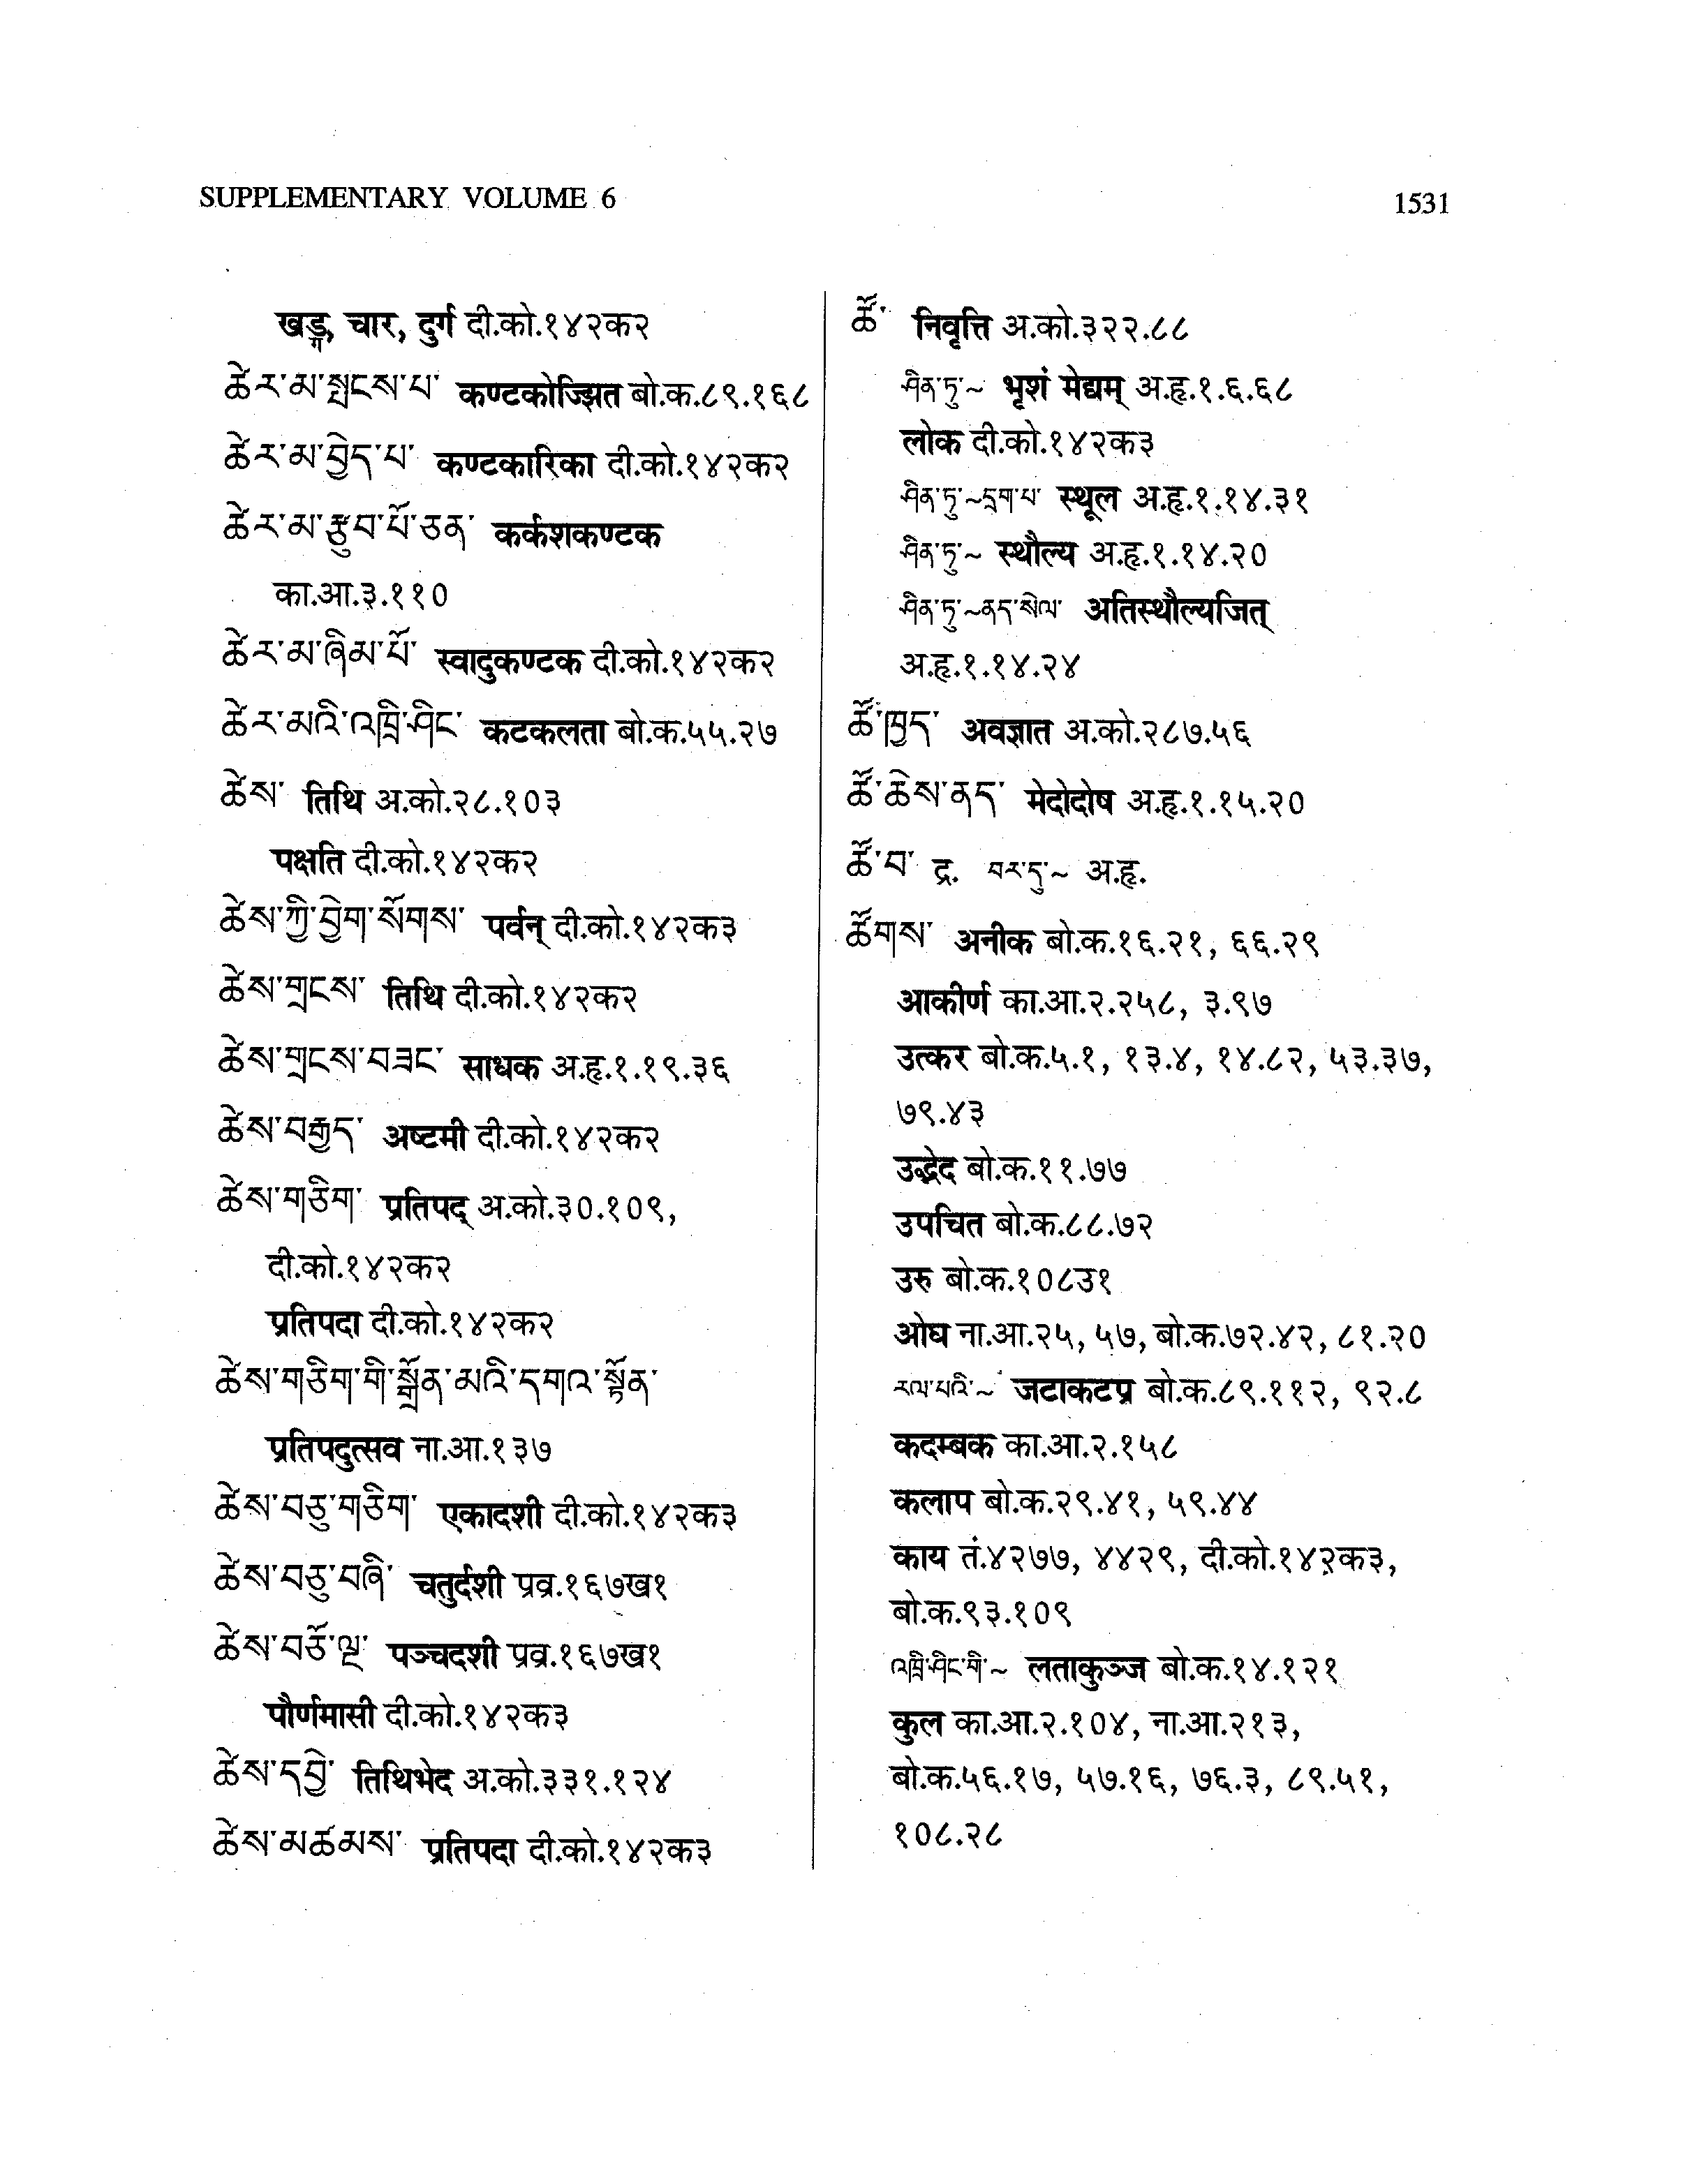 SUPPLEMENTARY VOLUME 6
1531
खड्ग, चार, दुर्ग दी.को.१४२क२
ཚེར་མ་སྤངས་པ་ कण्टकोज्झित बो.क.८९.१६८
ཚེར་མ་བྱེད་པ་ कण्टकारिका दी.को.१४२क२
ཚེར་མ་རྩུབ་པོ་ཅན་ कर्कशकण्टक
का.आ.३.११०
ཚེར་མ་ཞིམ་པོ་ स्वादुकण्टक दी.को.१४२क२
ཚེར་མའི་འཁྲི་ཤིང་ कटकलता बो.क.५५.२७
ཚེས་ तिथि अ.को.२८.१०३
पक्षति दी.को.१४२क२
ཚེས་ཀྱི་བྱེག་སོགས་ पर्वन् दी.को.१४२क३
ཚེས་གྲངས་ तिथि दी.को.१४२क२
ཚེས་གྲངས་བཟང་ साधक अ.हृ.१.१९.३६
ཚེས་བརྒྱད་ अष्टमी दी.को.१४२क२
ཚེས་གཅིག་ प्रतिपद् अ.को.३०.१०९,
दी.को.१४२क२
प्रतिपदा दी.को.१४२क२
ཚེས་གཅིག་གི་སྒྲོན་མའི་དགའ་སྟོན་
प्रतिपदुत्सव ना.आ.१३७
ཚེས་བཅུ་གཅིག་ एकादशी दी.को.१४२क३
ཚེས་བཅུ་བཞི་ चतुर्दशी प्रव्र.१६७ख१
ཚེས་བཅོ་ལྔ་ पञ्चदशी प्रव्र.१६७ख१
पौर्णमासी दी.को.१४२क३
ཚེས་དབྱེ་ तिथिभेद अ.को.३३१.१२४
ཚེས་མཚམས་ प्रतिपदा दी.को.१४२क३
ཚོ་ निवृत्ति अ.को.३२२.८८
ཤིན་ཏུ་~ भृशं मेद्यम् अ.हृ.१.६.६८
लोक दी.को.१४२क३
ཤིན་ཏུ་~དྲག་པ་ स्थूल अ.हृ.१.१४.३१
ཤིན་ཏུ་~ स्थौल्य अ.हृ.१.१४.२०
ཤིན་ཏུ་~ནད་སེལ་ अतिस्थौल्यजित्
अ.हृ.१.१४.२४
ཚོ་ཁྱད་ अवज्ञात अ.को.२८७.५६
ཚོ་ཆེས་ནད་ मेदोदोष अ.हृ.१.१५.२०
ཚོ་བ་ द्र. བར་དུ་~ अ.हृ.
ཚོགས་ अनीक बो.क.१६.२१, ६६.२९
आकीर्ण का.आ.२.२५८, ३.९७
उत्कर बो.क.५.१, १३.४, १४.८२, ५३.३७,
७९.४३
उद्भेद बो.क.११.७७
उपचित बो.क.८८.७२
उरु बो.क.१०८उ१
ओघ ना.आ.२५, ५७, बो.क.७२.४२, ८१.२०
རལ་པའི་~ जटाकटप्र बो.क.८९.११२, ९२.८
कदम्बक का.आ.२.१५८
कलाप बो.क.२९.४१, ५९.४४
काय तं.४२७७, ४४२९, दी.को.१४२क३,
बो.क.९३.१०९
འཁྲི་ཤིང་གི་~ लताकुञ्ज बो.क.१४.१२१
कुल का.आ.२.१०४, ना.आ.२१३,
बो.क.५६.१७, ५७.१६, ७६.३, ८९.५१,
१०८.२८